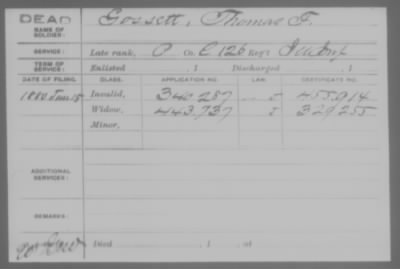 DEAD Gossett, Thomas F.
NAME OF SOLDIER:
SERVICE: Late rank, P Co. C 126 Reg't Ill Inf
TERM OF SERVICE: Enlisted , 1 Discharged , 1
DATE OF FILING. CLASS. APPLICATION NO. LAW. CERTIFICATE NO.
1880 Jan 15 Invalid, 340 287 455 914
Widow, 443,737 329 255
Minor,
ADDITIONAL SERVICES:
REMARKS:
Died , 1 , at